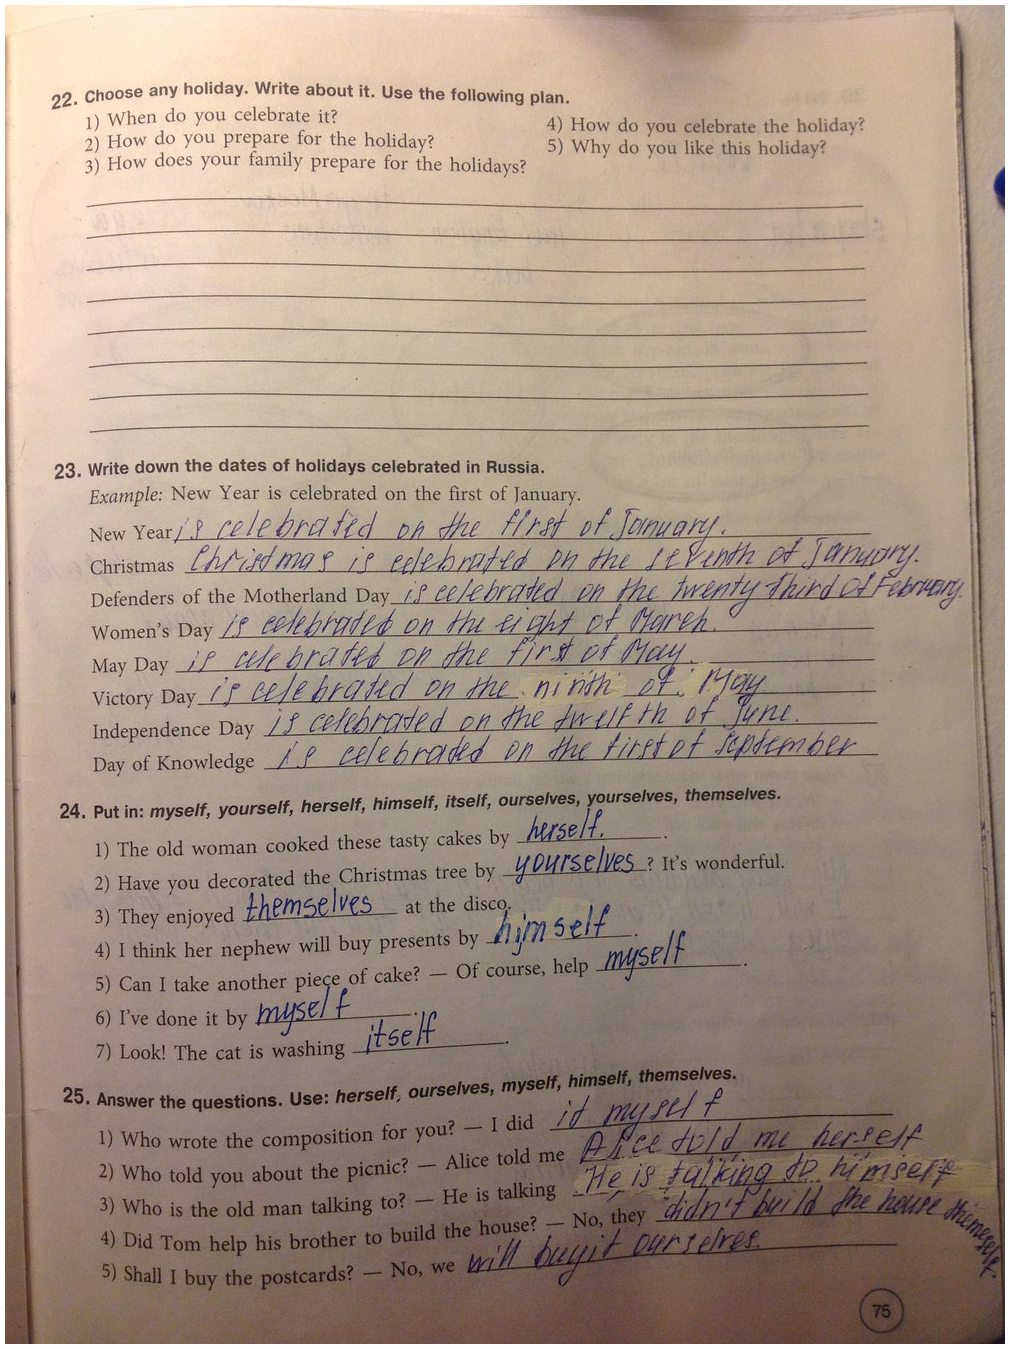 22. Choose any holiday. Write about it. Use the following plan.
1) When do you celebrate it?
2) How do you prepare for the holiday?
3) How does your family prepare for the holidays?
4) How do you celebrate the holiday?
5) Why do you like this holiday?
23. Write down the dates of holidays celebrated in Russia.
Example: New Year is celebrated on the first of January.
New Year is celebrated on the first of January.
Christmas Christmas is celebrated on the seventh of January.
Defenders of the Motherland Day is celebrated on the twenty third of February.
Women's Day is celebrated on the eight of March.
May Day is celebrated on the first of May.
Victory Day is celebrated on the ninth of May
Independence Day is celebrated on the twelfth of June.
Day of Knowledge is celebrated on the first of September
24. Put in: myself, yourself, herself, himself, itself, ourselves, yourselves, themselves.
1) The old woman cooked these tasty cakes by herself.
2) Have you decorated the Christmas tree by yourselves? It's wonderful.
3) They enjoyed themselves at the disco.
4) I think her nephew will buy presents by himself.
5) Can I take another piece of cake? — Of course, help myself.
6) I've done it by myself.
7) Look! The cat is washing itself.
25. Answer the questions. Use: herself, ourselves, myself, himself, themselves.
1) Who wrote the composition for you? — I did it myself
2) Who told you about the picnic? — Alice told me Alice told me herself
3) Who is the old man talking to? — He is talking He is talking to himself
4) Did Tom help his brother to build the house? — No, they didn't build the house themselves.
5) Shall I buy the postcards? — No, we will buy it ourselves.
75